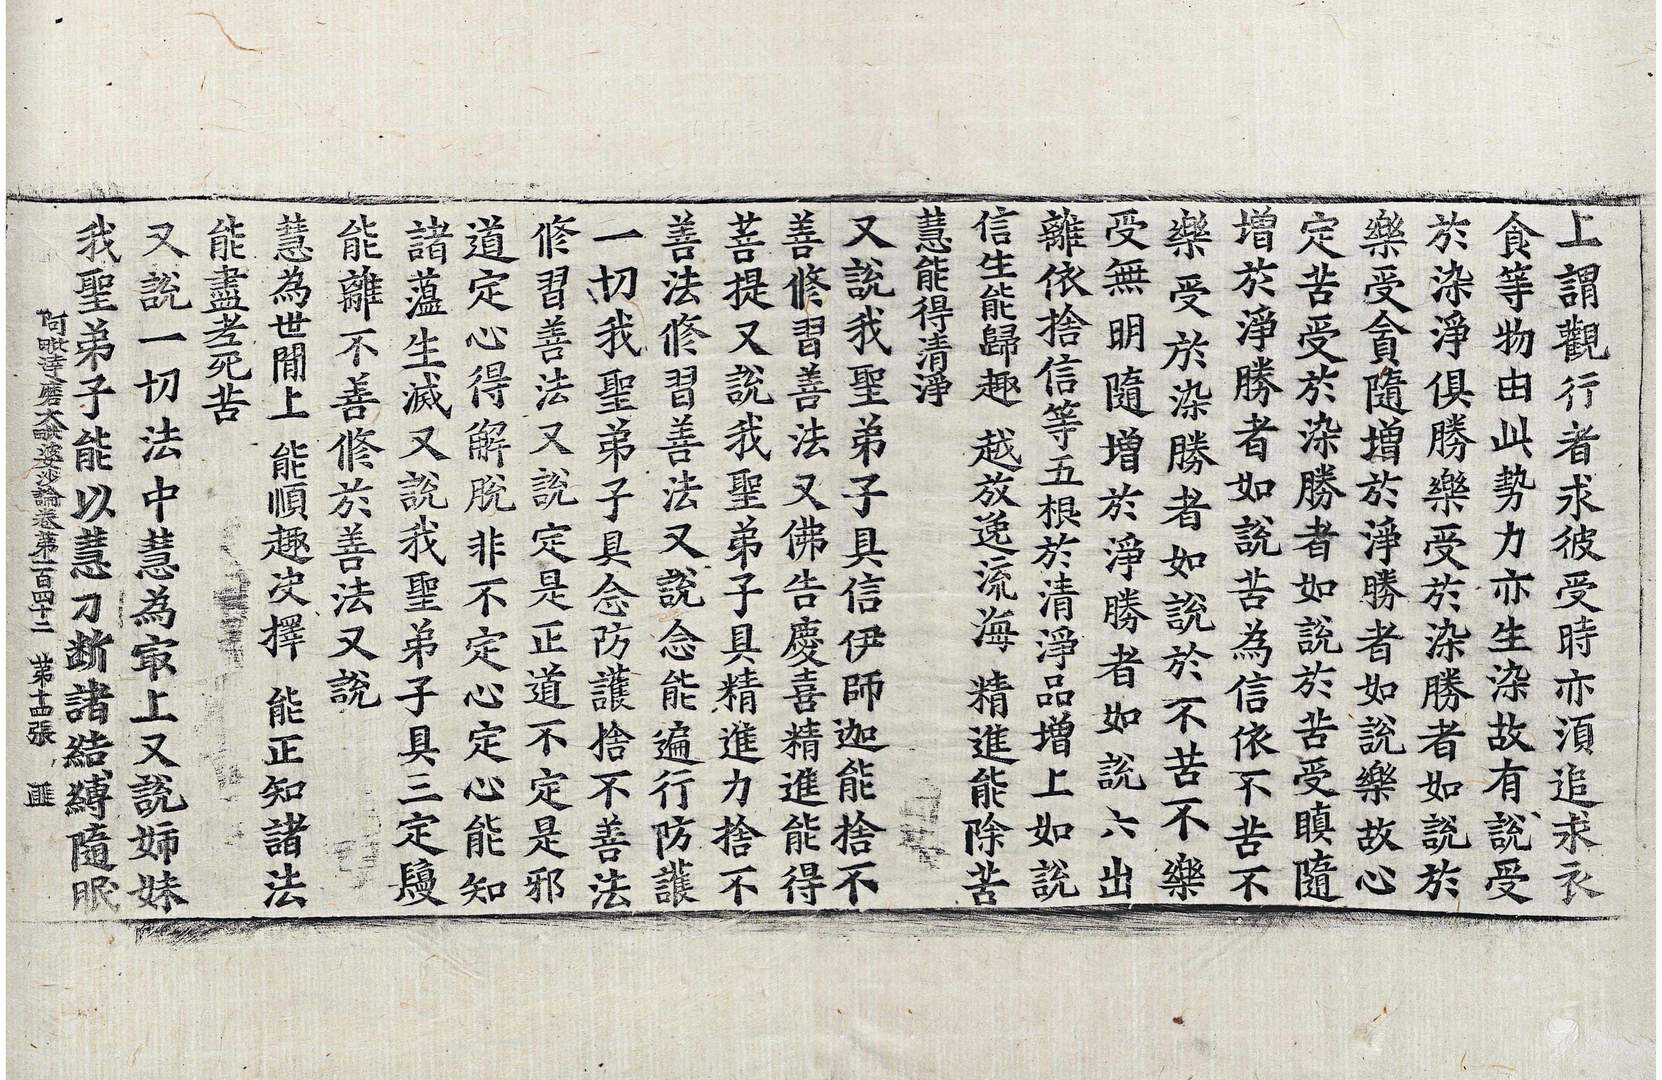 上謂觀行者求彼受時亦須追求衣
食等物由此勢力亦生染故有說受
於染淨俱勝樂受於染勝者如說於
樂受貪隨增於淨勝者如說樂故心
定苦受於染勝者如說於苦受瞋隨
增於淨勝者如說苦為信依不苦不
樂受於染勝者如說於不苦不樂
受無明隨增於淨勝者如說六出
離依捨信等五根於清淨品增上如說
信生能歸趣 越放逸流海 精進能除苦
慧能得清淨
又說我聖弟子具信伊師迦能捨不
善修習善法又佛告慶喜精進能得
菩提又說我聖弟子具精進力捨不
善法修習善法又說念能遍行防護
一切我聖弟子具念防護捨不善法
修習善法又說定是正道不定是邪
道定心得解脫非不定心定心能知
諸蕰生滅又說我聖弟子具三定鬘
能離不善修於善法又說
慧為世間上 能順趣決擇 能正知諸法
能盡老死苦
又說一切法中慧為冣上又說姉妹
我聖弟子能以慧刀斷諸結縛隨眠
阿毗達磨大毗婆沙論卷第一百四十二 第十四張 匪